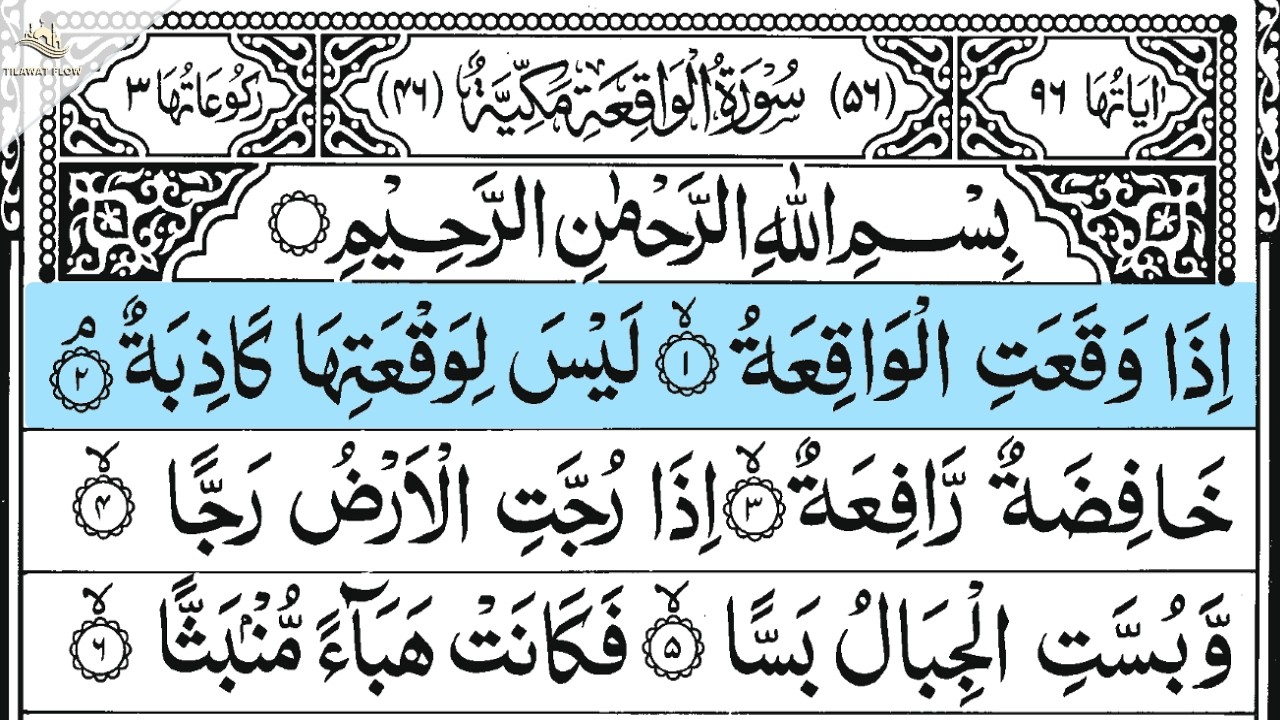 TILAWAT FLOW
اٰيَاتُهَا ٩٦ (٥٦) سُوْرَةُ الْوَاقِعَةِ مَكِّيَّةٌ (٤٦) رُكُوْعَاتُهَا ٣
بِسْمِ اللّٰهِ الرَّحْمٰنِ الرَّحِيْمِ
اِذَا وَقَعَتِ الْوَاقِعَةُ ۙ‏﴿۱﴾ لَيْسَ لِوَقْعَتِهَا كَاذِبَةٌ ۘ‏﴿۲﴾
خَافِضَةٌ رَّافِعَةٌ ۙ‏﴿۳﴾ اِذَا رُجَّتِ الْاَرْضُ رَجًّا ۙ‏﴿۴﴾
وَّ بُسَّتِ الْجِبَالُ بَسًّا ۙ‏﴿۵﴾ فَكَانَتْ هَبَآءً مُّنْۢبَثًّا ۙ‏﴿۶﴾